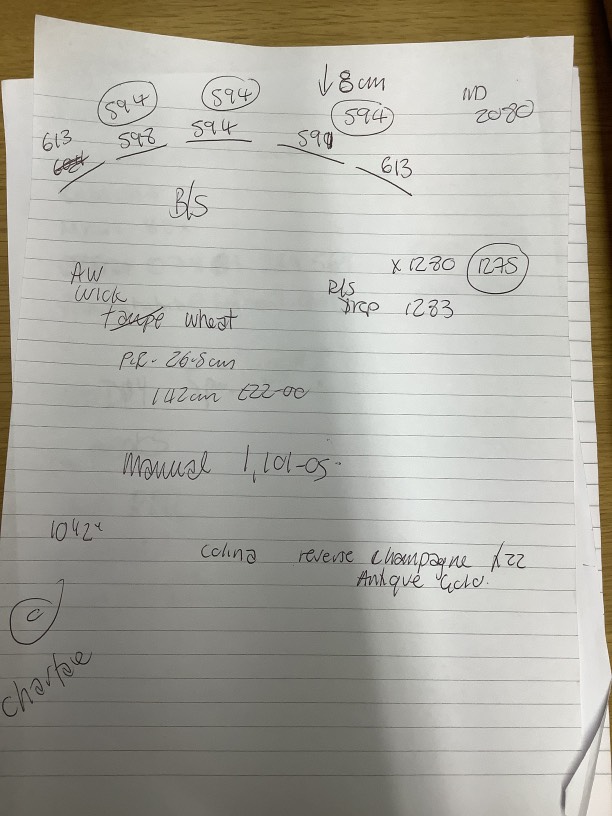 ↓8cm
594 594 594 WD
2080
613 598 594 591 613
B/S
AW
x 1280 1275
Wick
drop 1283
taupe wheat
P.R - 26.8cm
142cm £22-00
Manual 1,101-05.
1042
Colina reverse champagne x22
Antique Gold.
C